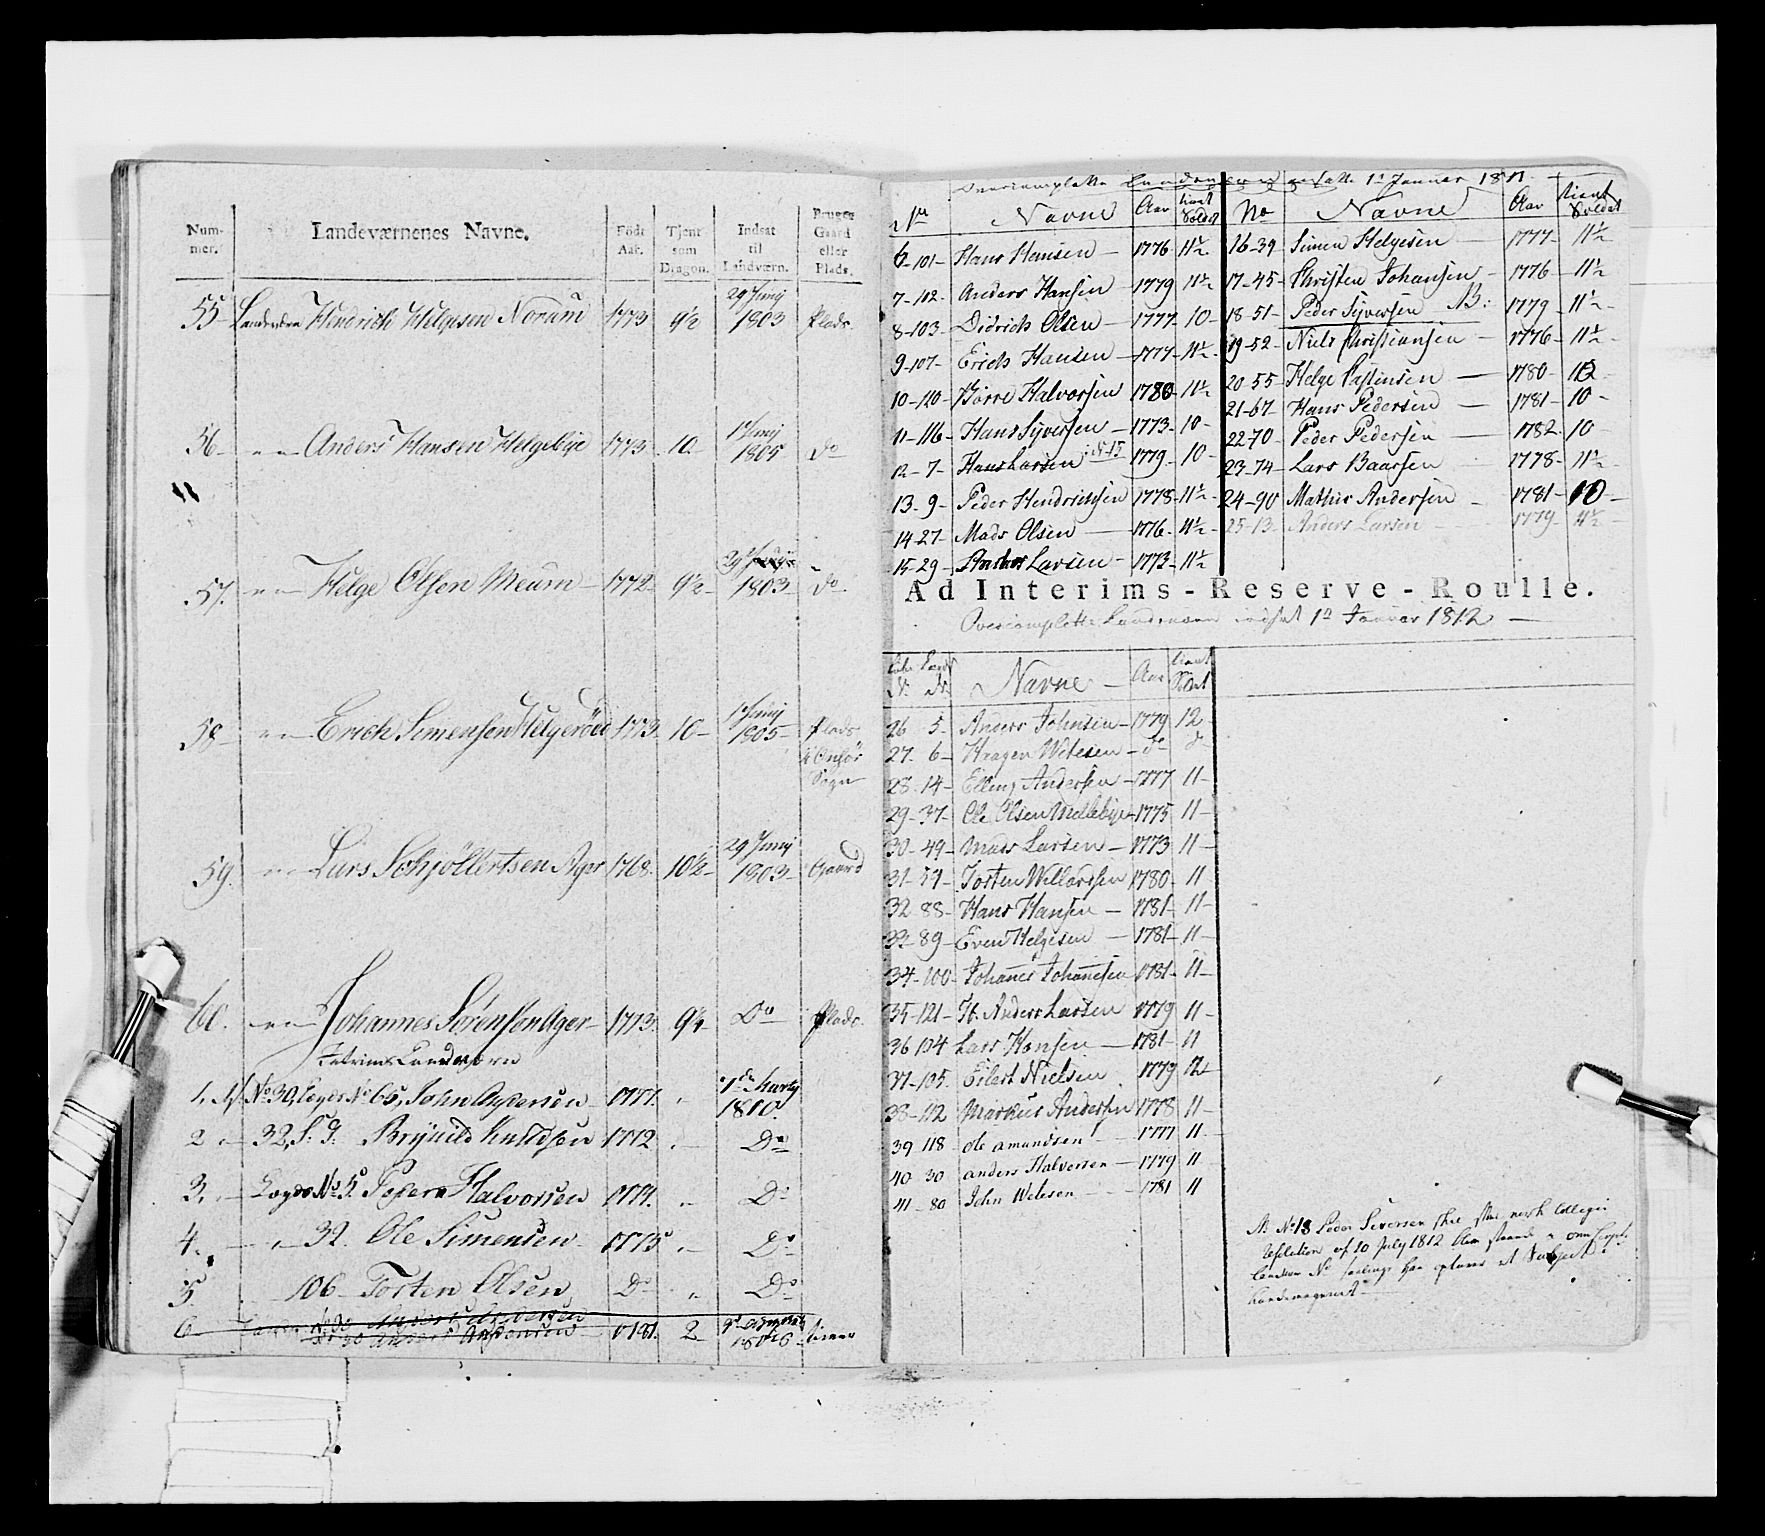 Num-
mer. Landeværnenes Navne. Födt Aar. Tjent som Dragon. Indsat til Landværn. Bruger Gaard eller Plads.
55 Landvern Hendrich Helgesen Norum 1773 9½ 29 Junij 1803 Plads
56 " " Anders Hansen Helgebye 1773 10 1 Junij 1805 Do
57. " " Helge Olsen Meum 1772 9½ 29 Junij 1803 Do
58 " " Erich Simensen Helgeröed 1773 10 1 Junij 1805 Plads i Onsöe Sogn
59. " " Lars Schjöllertsen Ager 1768 10½ 29 Junij 1803 Gaard
60. " " Johannes Sörensen Ager 1773 9½ Do Plads
Interims Landværn
1. No 30, Lægds No 65, John 1777. " 1810.
2 " 32, Knudsen 1772 " Do
3. " Lægds No 5. Halvorsen 1774. " Do
4. " 32. Ole Simensen 1775 " Do
5 106 Torten Olsen Do " Do
6 No 30 Anders Andersen 1781 2 1806
Overcomplette Landværn ansatte 1te Januar 1811
No Navne Aar tient Soldat
6-101- Hans Hansen 1776 11½
7-102- Anders Hansen 1779 11½
8-103- Didrich Olsen 1777 10
9-107- Erich Hansen 1777 11½
10-110- Börre Halvorsen 1780 11½
11-116- Hans Syversen 1773 10
12-7- Hans Larsen 1779 10
13-9- Peder Hendrichsen 1778 11½
14-27- Mads Olsen 1776 11½
15-29- Anders Larsen 1773 11½
No Navne Aar tient Soldat
16-39 Simen Helgesen 1777 11½
17-45- Christen Johansen 1776 11½
18-51- Peder Syversen NB: 1779 11½
19-52- Niels Christiansen 1776 11½
20-55 Helge Pastinsen 1780 10
21-67 Hans Pedersen 1781 10
22-70- Peder Pedersen 1782 10
23-74- Lars Baarsen 1778 11½
24-90 Mathis Andersen 1781 10
25-13- Anders Larsen 1779 11½
Ad Interims-Reserve-Roulle.
Overcomplette Landværn indsat 1te Januar 1812
No No Navne Aar tient Soldat
26 5- Anders Johnsen 1779 12
27. 6- Haagen Wetesen do do
28. 14- Elling Andersen 1777 11
29- 37- Ole Olsen Mellebye 1775 11
30- 49- Mads Larsen 1773 11
31- 59- Torten Willardsen 1780 11
32- 88- Hans Hansen 1781 11
33- 89- Even Helgesen 1781 11
34- 100- Johannes Johannesen 1781 11
35- 121- H. Anders Larsen 1779 11
36 104 Lars Hansen 1781 11
37- 105. Eilert Nielsen 1779 12
38- 112 Markus Andersen 1778 11
39 118 Ole Amundsen 1777 11
40 30 Anders Halvorsen 1779 11
41- 80 John Wetesen 1781 11
NB No 18 Peder Siversen skal efter norsk Collegii
Resolution af 20 July 1812
Landværn No